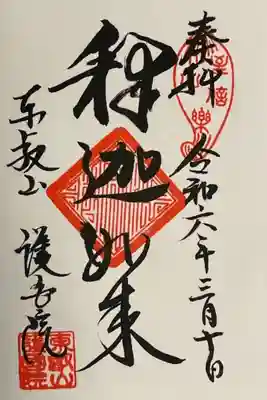 奉拝
令和六年三月十日
釈迦如来
東叡山 護国院